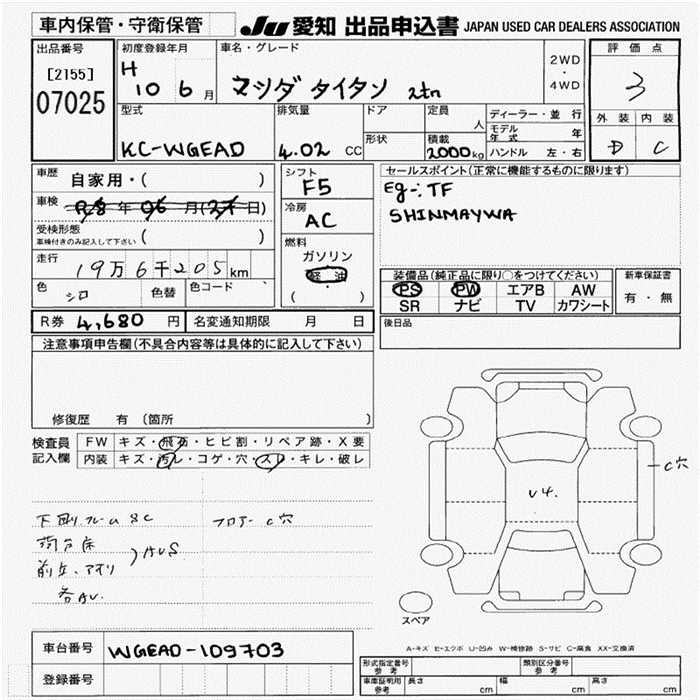 車内保管・守衛保管
JU 愛知 出品申込書 JAPAN USED CAR DEALERS ASSOCIATION
出品番号
[2155]
07025
初度登録年月
H 10 6 月
車名・グレード
マツダ タイタン 2tn
2WD
・
4WD
評価点
3
外装 内装
D C
型式
KC-WGEAD
排気量
4.02 CC
ドア
形状
定員
人
積載
2000kg
ディーラー・並行
モデル年式 年
ハンドル 左・右
車歴
自家用・( )
車検
年 06 月( 日)
受検形態
車検付きのみ記入して下さい ( )
走行
19万6千205km
色
シロ
色替
色コード
シフト
F5
冷房
AC
燃料
ガソリン
軽油
( )
セールスポイント(正常に機能するものに限ります)
Eg:TF
SHINMAYWA
装備品(純正品に限り○をつけてください)
PS PW エアB AW
SR ナビ TV カワシート
新車保証書
有・無
R券 4,680 円
名変通知期限 月 日
後日品
注意事項申告欄(不具合内容等は具体的に記入して下さい)
修復歴 有 (箇所 )
検査員記入欄
FW キズ・飛石・ヒビ割・リペア跡・X要
内装 キズ・汚レ・コゲ・穴・スレ・キレ・破レ
下廻フレーム SC
フロアー C穴
荷台床
前立、アオリ
AUS
各AU.
C穴
U4.
スペア
A-キズ E-エクボ U-凹み W-補修跡 S-サビ C-腐食 XX-交換済
車台番号
WGEAD-109703
登録番号
形式指定番号
参考
類別区分番号
参考
車庫証明用
参考
長さ cm 幅 cm 高さ cm